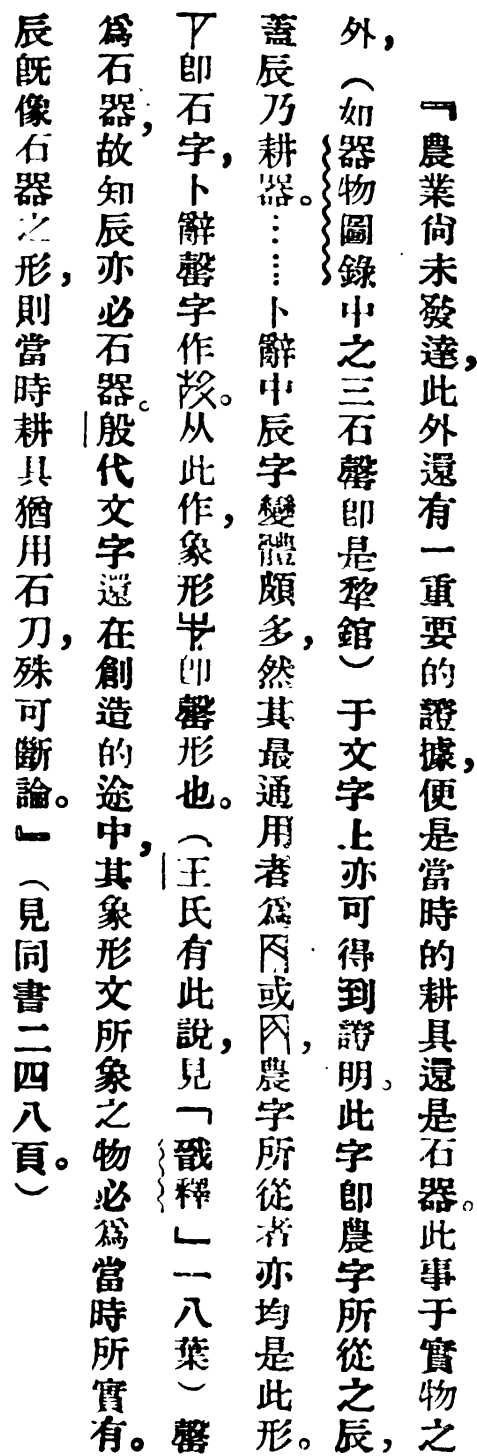 『農業尙未發達，此外還有一重要的證據，便是當時的耕具還是石器。此事于實物之
外，（如器物圖錄中之三石罄卽是犂錧）于文字上亦可得到證明。此字卽農字所從之辰，
蓋辰乃耕器。……卜辭中辰字變體頗多，然其最通用者爲或，農字所從者亦均是此形。
卽石字，卜辭罄字作。从此作，象形卽罄形也。（王氏有此說，見「戩釋」一八葉）罄
爲石器，故知辰亦必石器。殷代文字還在創造的途中，其象形文所象之物必爲當時所實有。
辰旣像石器之形，則當時耕具猶用石刀，殊可斷論。』（見同書二四八頁。）